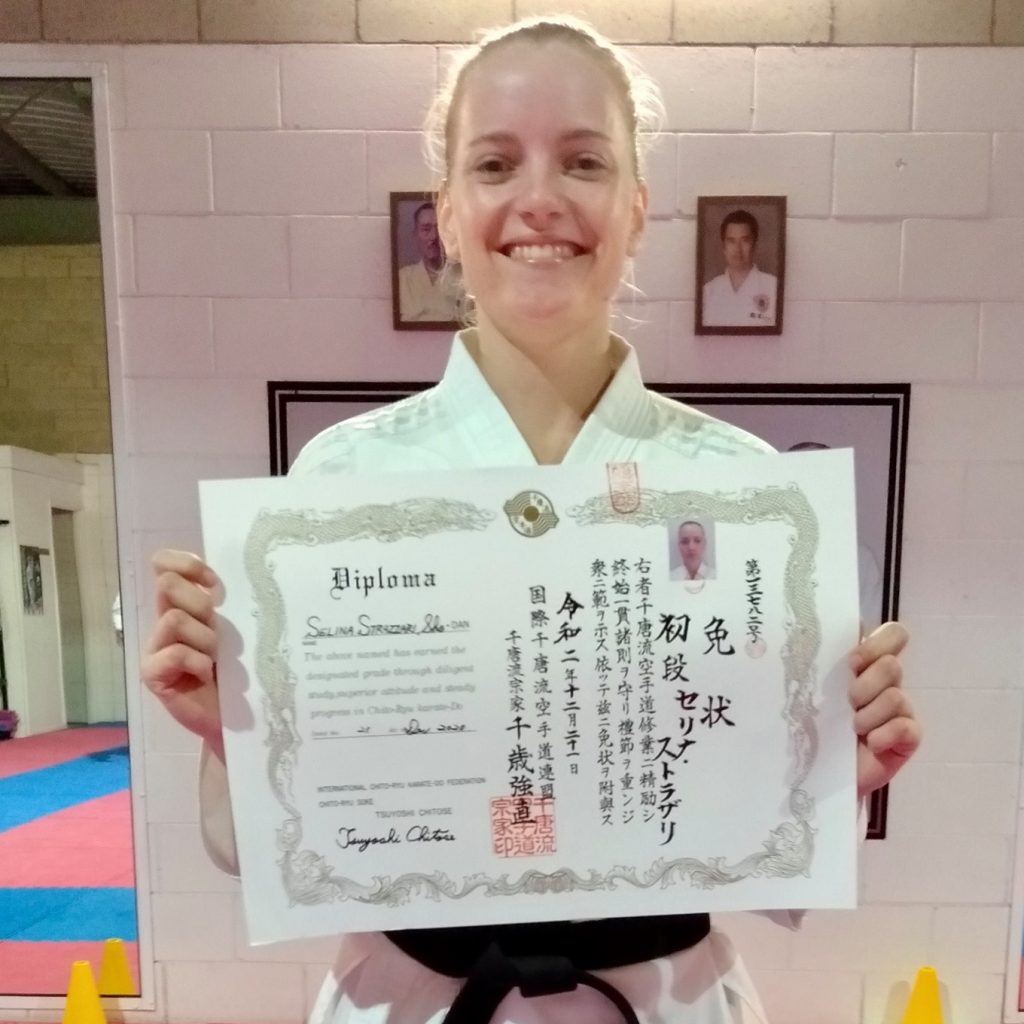 Diploma
SELINA STRAZZARI Sho-DAN
NAME
The above named has earned the
designated grade through diligent
study, superior attitude and steady
progress in Chito-Ryu karate-Do
21 Dec 2020
INTERNATIONAL CHITO-RYU KARATE-DO FEDERATION
CHITO-RYU SOKE
TSUYOSHI CHITOSE
Tsuyoshi Chitose
第一三七八二号
免状
初段 セリナ・ストラザリ
右者千唐流空手道修業ニ精励シ
終始一貫諸則ヲ守リ禮節ヲ重ンジ
衆ニ範ヲ示ス依ッテ茲ニ免状ヲ附與ス
令和二年十二月二十一日
国際千唐流空手道連盟
千唐流宗家 千歳強直
千唐流
空手道
宗家印